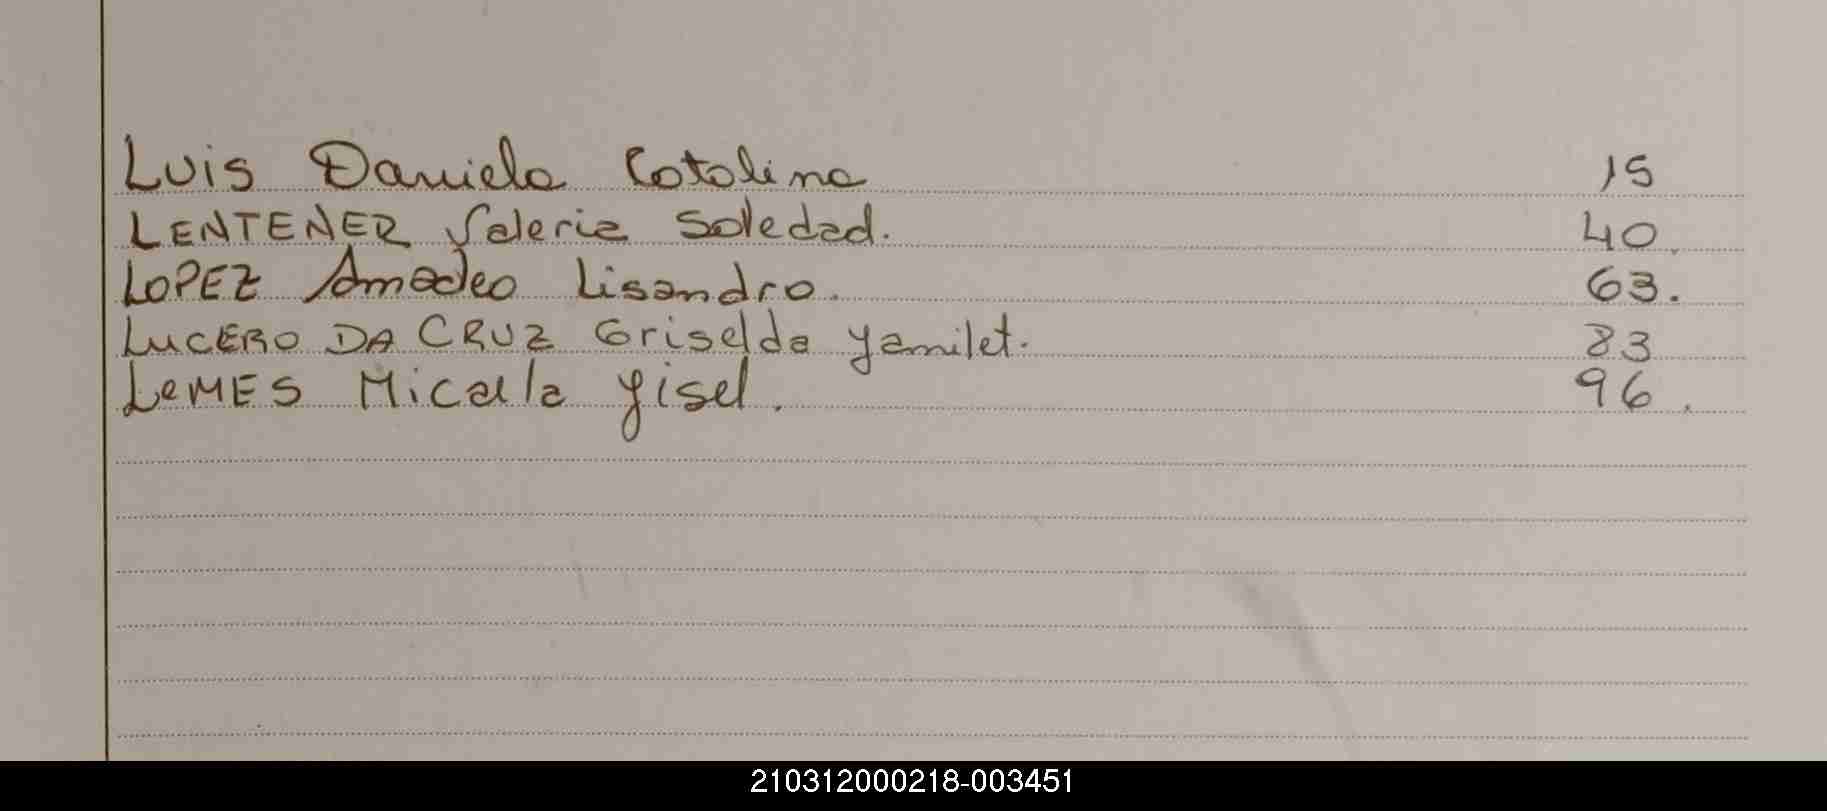 Luis Daniela Catalina 15
LENTENER Valeria Soledad. 40.
LOPEZ Amadeo Lisandro. 63.
LUCERO DA CRUZ Griselda Yamilet. 83
LeMES Micaela Yisel. 96.
210312000218-003451